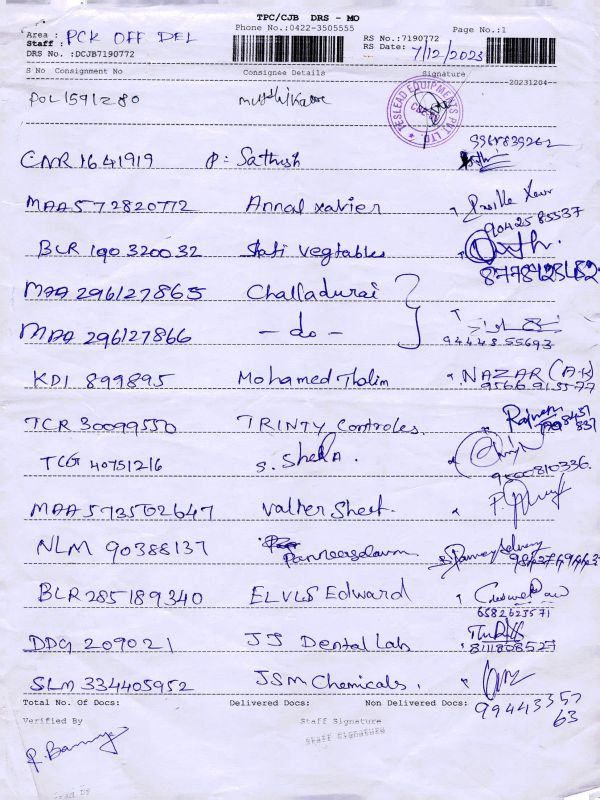 TPC/CJB DRS - MO
Phone No.:0422-3505555
Page No.:1
Area : PCK OFF DEL
RS No.:7190772
Staff :
RS Date: 7/12/2023
DRS No. :DCJB7190772
S No Consignment No Consignee Details Signature
20231204
POL1591280
YESLEAD EQUIPMENTS PVT. LTD.
CNR 1641919 P: Sathish
MAA572820772 Annal xavier
9042585537
BLR 190320032 Sakti vegtables
MAA 296127865 Challadurai
MAA 296127866 - do -
9444855693
KDI 899895 Mohamed Thalim NAZAR (A.K)
9566913577
TCR 30099550 TRINTY Controles.
TCG 40751216 S. Sheela.
9500810336.
MAA573502647 Valker Sheet.
NLM 90388137 Panneerselvam
BLR285189340 ELVIS Edward
6582623571
DDG 209021 JJ Dental Lab
8111808527
SLM 334405952 JSM Chemicals.
9944335763
Total No. Of Docs: Delivered Docs: Non Delivered Docs:
Verified By Staff Signature
Staff Signature